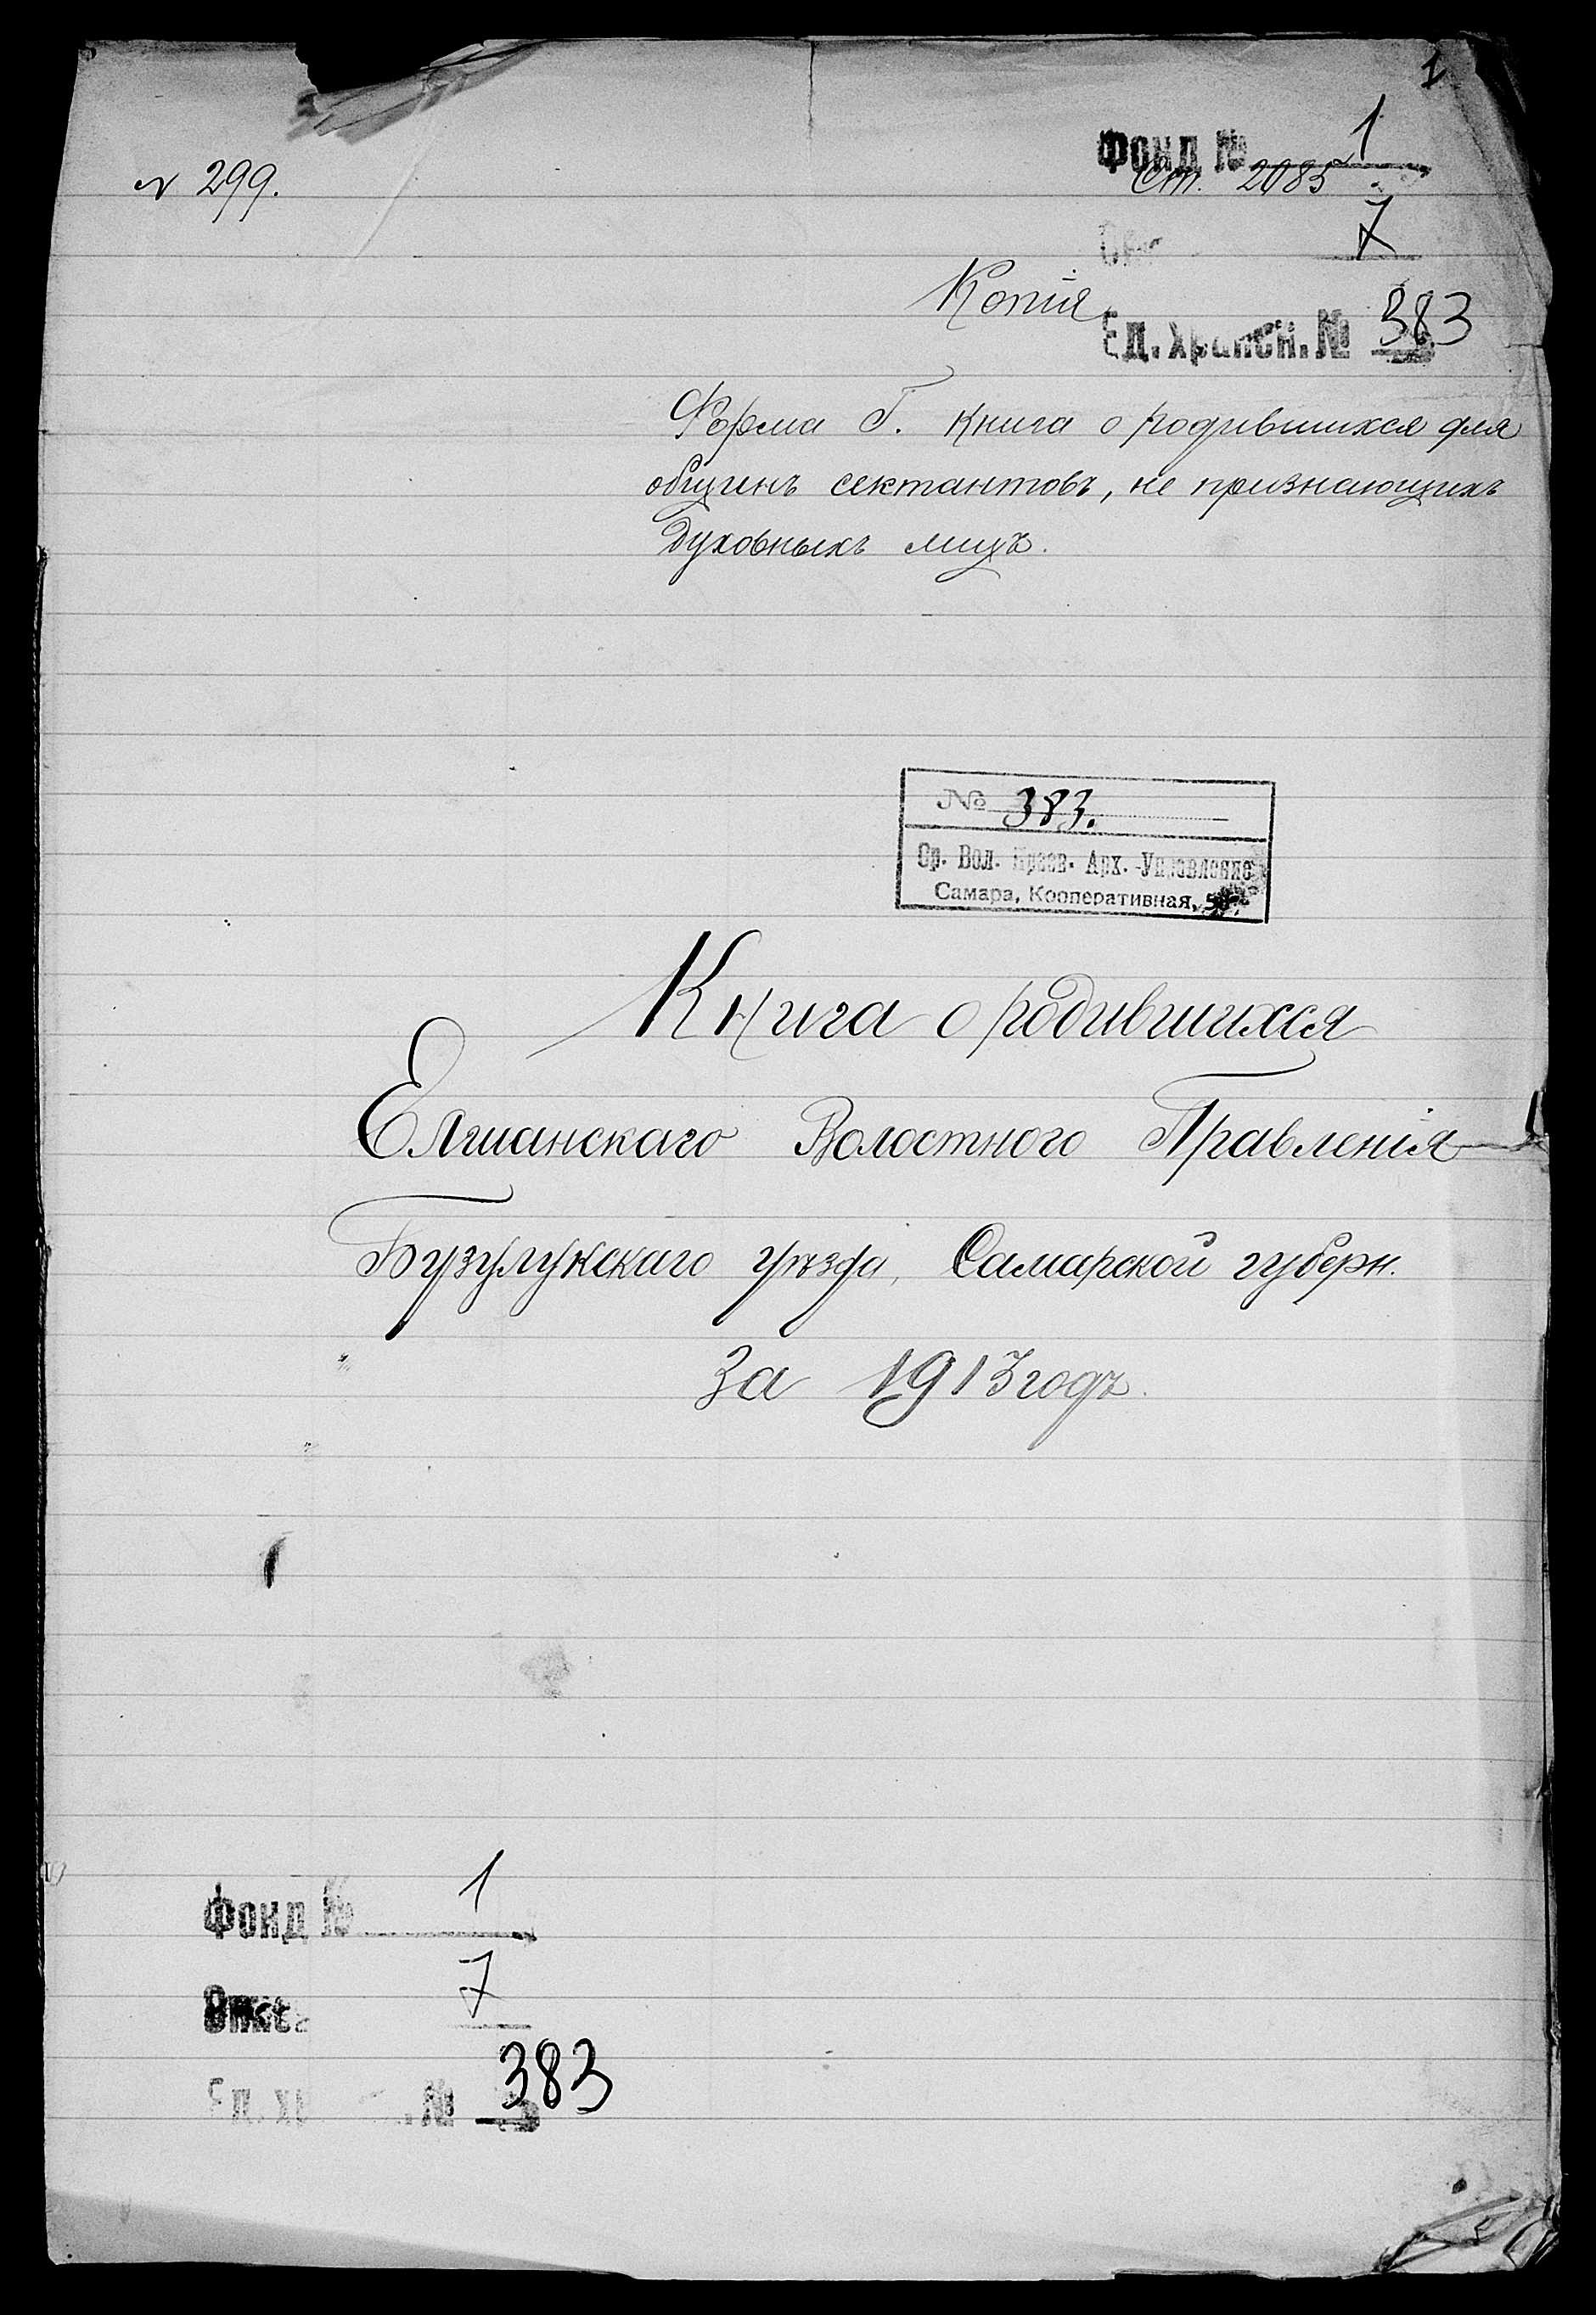 1
Фонд № 1
№ 299.
Ст. 2085
7
Копія
Ед. хранен. № 383
Форма Г. Книга о родившихся для
общинъ сектантовъ, не признающихъ
духовныхъ лицъ.
№ 383.
Ср. Вол. Краев. Арх. Управление
Самара, Кооперативная,
Книга о родившихся
Елшанскаго Волостного Правленія
Бузулукскаго уѣзда, Самарской губерн.
За 1913 годъ.
Фонд № 1
Опись 7
Ед. хр №
383